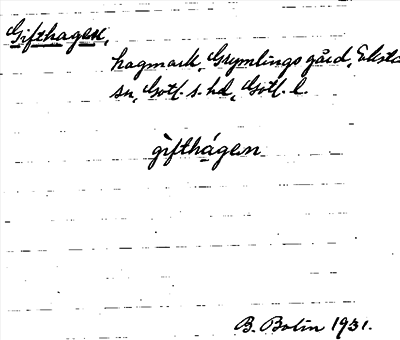 Gifthagen,
hagmark, Grymlings gård, Eksta
sn, Gotl. s. hd, Gotl. l.
gìfthágen
B. Bolin 1931.